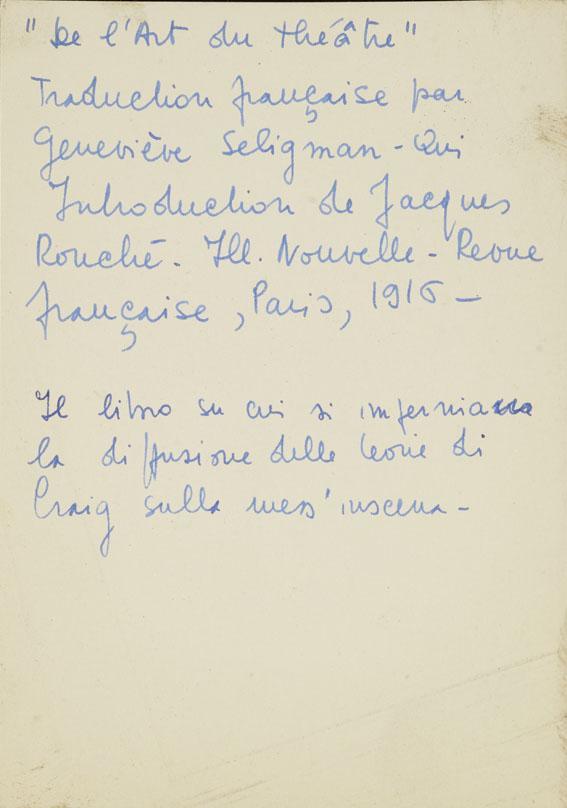 "De l'Art du théâtre"
Traduction française par
Geneviève Seligman - Qui
Introduction de Jacques
Rouché - Ill. Nouvelle - Revue
française, Paris, 1916 -
Il libro su cui si impernia
la diffusione delle teorie di
Craig sulla mess'inscena -